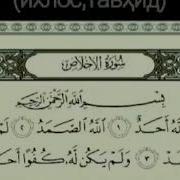 (ихлос,тавҳид)
سُورَةُ الْإِخْلَاصِ
بِسْمِ اللَّهِ الرَّحْمَٰنِ الرَّحِيمِ
لَّهُ أَحَدٌ ١ اللَّهُ الصَّمَدُ ٢ لَمْ
دْ ٣ وَلَمْ يَكُن لَّهُ كُفُوًا أَحَ